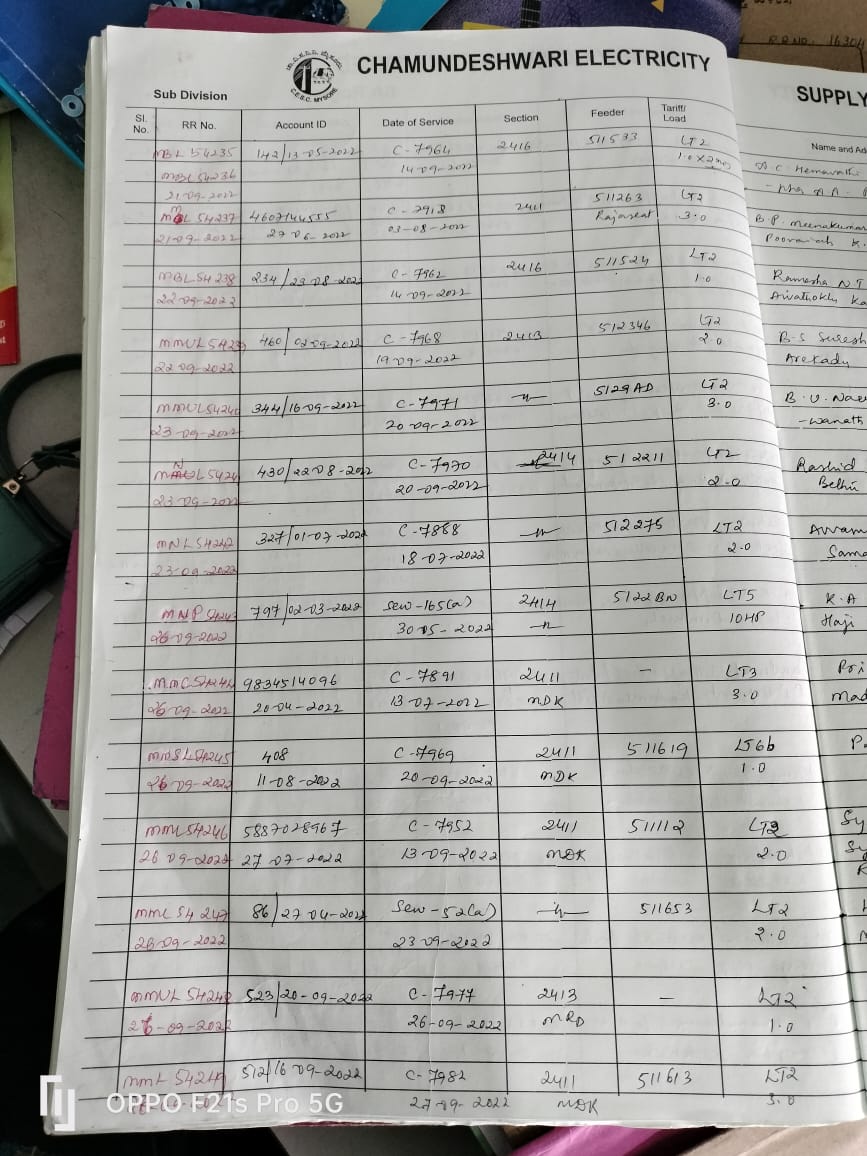 R.R.NO. 16304
CHAMUNDESHWARI ELECTRICITY
C.E.S.C. MYSORE
SUPPLY
Sub Division
Sl. No. RR No. Account ID Date of Service Section Feeder Tariff/ Load Name and Ad
MBL 54235 142/13-05-2022 C-7964 2416 511533 LT2
MBL 54236 14-09-2022 1.0 x 2
21-09-2022
54237 4607144555 C-7918 2411 511263 LT2
21-09-2022 27 06-2022 03-08-2022 Rajaseat 3.0 B.P. Meenakumar
MBL 54238 234/23 08-2022 C-7962 2416 511524 LT2 Ramesha N T
22-09-2022 14 09-2022 1.0
MMUL 54239 460/02-09-2022 C-7968 2413 512346 LT2 B-S Suresh
22-09-2022 19 09-2022 2.0 Arekadu
MMUL 54240 344/16-09-2022 C-7971 -"- 5129AD LT2 B.U.
23-09-2022 20-09-2022 3.0 -wanath
5424 430/22-08-2022 C-7970 2414 512211 LT2 Rashid
23-09-2022 20-09-2022 2.0
MNL 54242 327/01-07-2022 C-7888 -"- 512275 LT2 Awam
23-09-2022 18-07-2022 2.0
MNP 5424 797/02-03-2022 Sew-165(a) 2414 5122BN LT5 K.A
26-09-2022 30 05-2022 -"- 10HP Haji
MMC 54244 9834514096 C-7891 2411 - LT3 Pri
26-09-2022 20-04-2022 13-07-2022 MDK 3.0 mad
54245 408 C-7969 2411 511619 LT6b P.
26-09-2022 11-08-2022 20-09-2022 MDK 1.0
MML 54246 5887028967 C-7952 2411 511112 Sy
26 09-2022 27 07-2022 13-09-2022 MDK 2.0
MML 54247 86/27 04-2022 Sew-52(a) -"- 511653 LT2
26-09-2022 23 09-2022 2.0
MMUL 54248 523/20-09-2022 C-7977 2413 - LT2
-09-2022 26-09-2022 1.0
MML 54249 512/16 09-2022 C-7982 2411 511613 LT2
27-09-2022 MDK 3.0
OPPO F21s Pro 5G